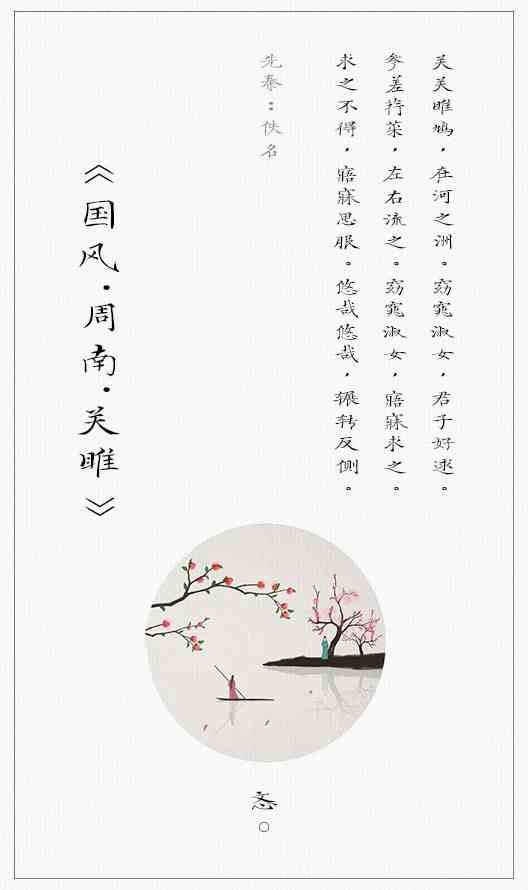 关关雎鸠，在河之洲。窈窕淑女，君子好逑。
参差荇菜，左右流之。窈窕淑女，寤寐求之。
求之不得，寤寐思服。悠哉悠哉，辗转反侧。
先秦：佚名
《国风·周南·关雎》